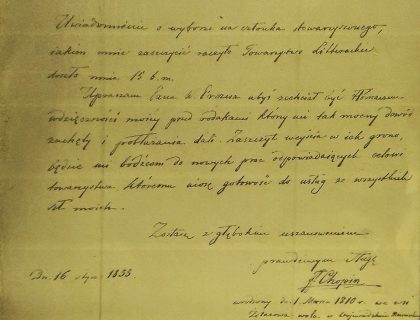 Uwiadomienie o wyborze na członka stowarzyszonego,
jakiem mnie zaszczycić raczyło Towarzystwo Litterackie
doszło mnie 15 b. m.
Upraszam Pana W. Prezesa abyś zechciał być tłómaczem
wdzięczności mojej przed rodakami który mi tak mocny dowód
zachęty i pobłażania dali. Zaszczyt wejścia w ich grono,
będzie mi bodźcem do nowych prac odpowiadających celowi
towarzystwa któremu niosę gotowość do usług ze wszystkich
sił moich.
Zostaję z głębokim uszanowaniem
prawdziwym sługą
F Chopin
Dn. 16 stycz 1833.
urodzony dn. 1 Marca 1810 we wsi
Żelazowa wola w Województwie